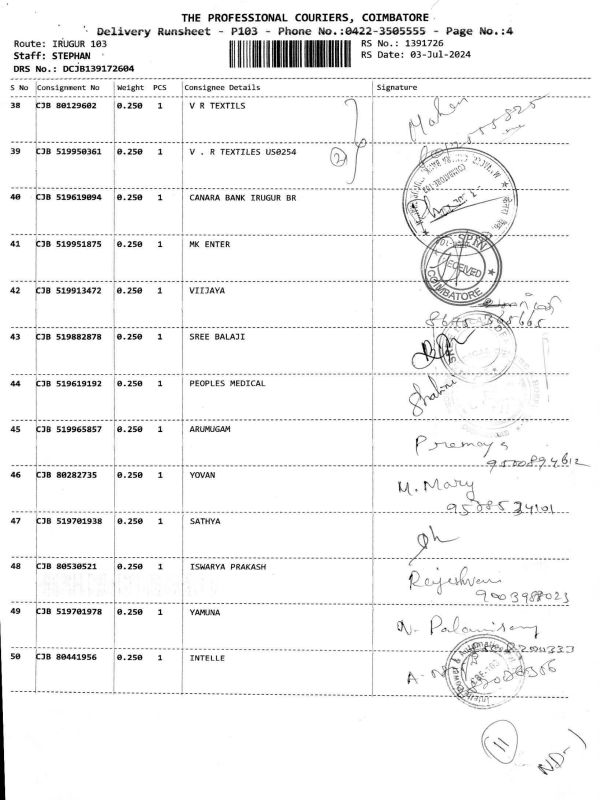 THE PROFESSIONAL COURIERS, COIMBATORE
Delivery Runsheet - P103 - Phone No.:0422-3505555 - Page No.:4
Route: IRUGUR 103 RS No.: 1391726
Staff: STEPHAN RS Date: 03-Jul-2024
DRS No.: DCJB139172604
S No Consignment No Weight PCS Consignee Details Signature
38 CJB 80129602 0.250 1 V R TEXTILS Mohan
39 CJB 519950361 0.250 1 V . R TEXTILES US0254
2
40 CJB 519619094 0.250 1 CANARA BANK IRUGUR BR
41 CJB 519951875 0.250 1 MK ENTER
SPIN
RECEIVED
COIMBATORE
42 CJB 519913472 0.250 1 VIIJAYA
43 CJB 519882878 0.250 1 SREE BALAJI
44 CJB 519619192 0.250 1 PEOPLES MEDICAL Shalini
45 CJB 519965857 0.250 1 ARUMUGAM Premaya
9500894612
46 CJB 80282735 0.250 1 YOVAN M. Mary
9585534101
47 CJB 519701938 0.250 1 SATHYA
48 CJB 80530521 0.250 1 ISWARYA PRAKASH Rajeshwari
9003988023
49 CJB 519701978 0.250 1 YAMUNA N. Palanisamy
50 CJB 80441956 0.250 1 INTELLE
11
ND-1